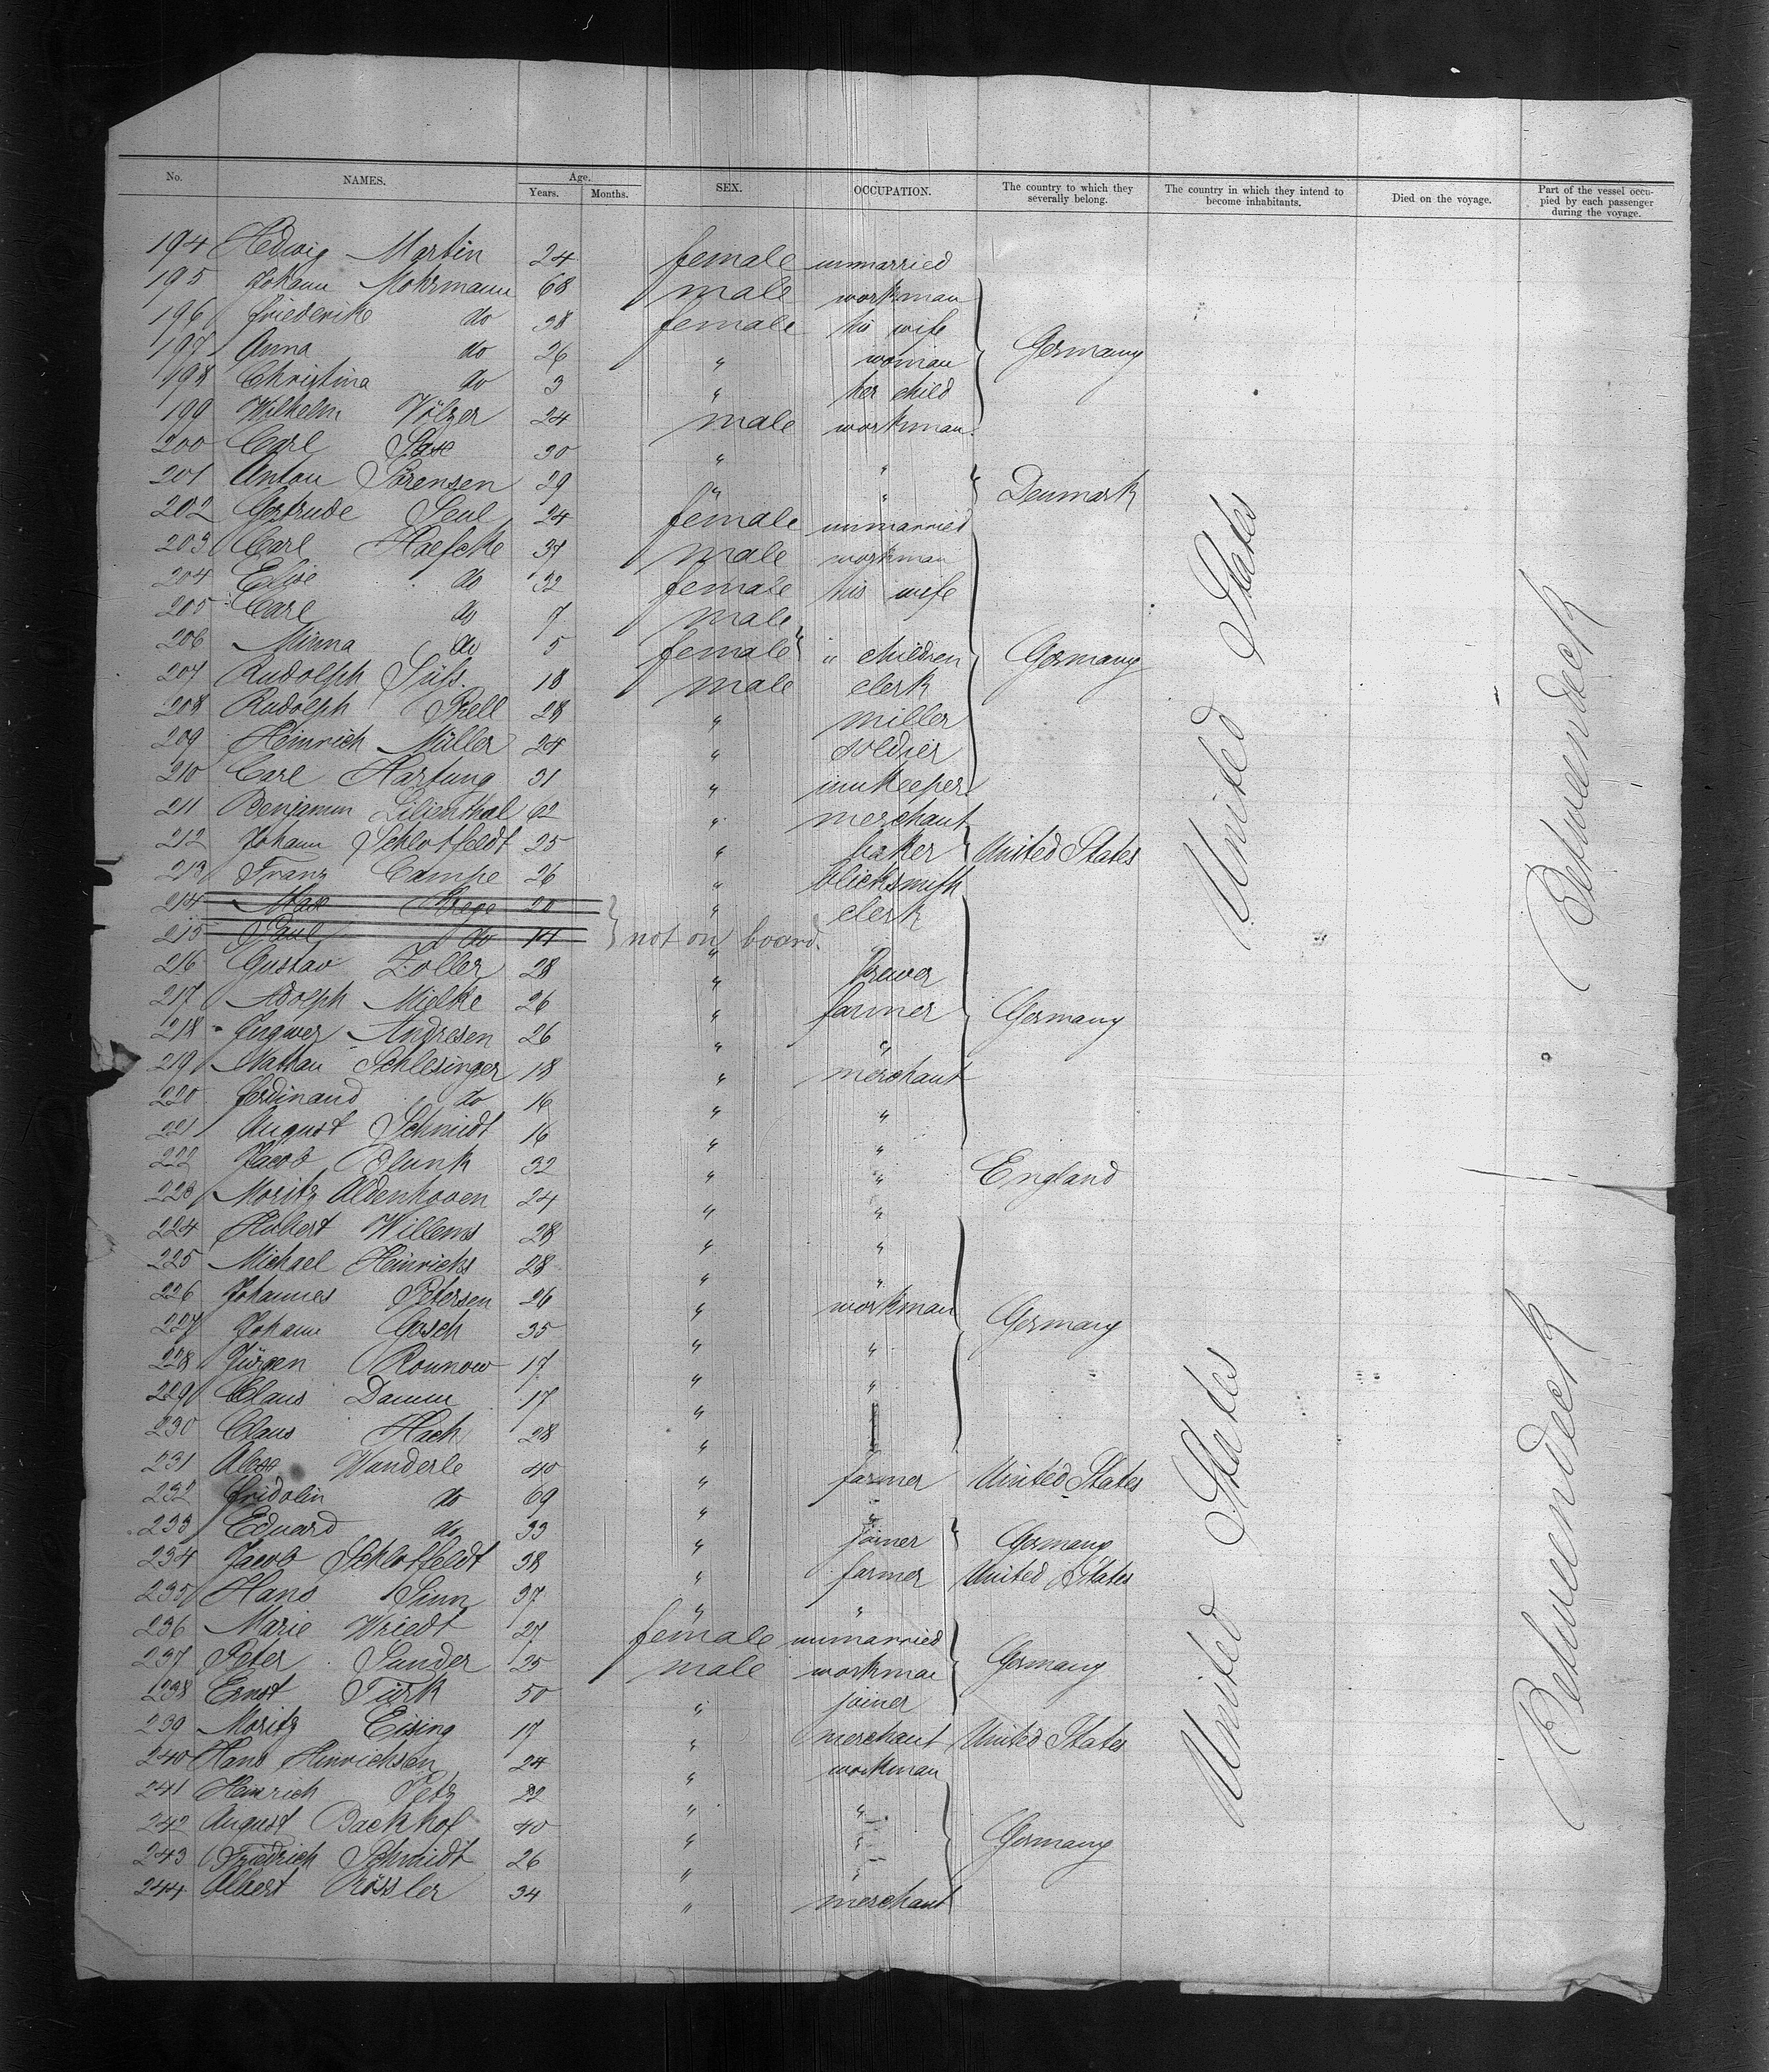 No. NAMES. Age. Years. Months. SEX. OCCUPATION. The country to which they severally belong. The country in which they intend to become inhabitants. Died on the voyage. Part of the vessel occupied by each passenger during the voyage.
194 Hedwig Martin 24 female unmarried
195 Johann Mohrmann 68 male workman
196 Friederike do 38 female his wife
197 Anna do 26 " woman Germany
198 Christina do 3 " her child
199 Wilhelm Völzer 24 male workman
200 Carl Sass 30 " "
201 Anton Sörensen 29 " " Denmark
202 Gertrude Seul 24 female unmarried
203 Carl Haefcke 37 male workman
204 Elise do 32 female his wife
205 Carl do 7 male
206 Minna do 5 female " children Germany
207 Rudolph Süß 18 male clerk
208 Rudolph Prell 28 " miller
209 Heinrich Müller 24 " soldier
210 Carl Hartung 31 " innkeeper
211 Benjamin Lilienthal 62 " merchant
212 Johann Schlotfeldt 25 " baker United States
213 Franz Campe 26 " blicksmith
214 Max 20 " clerk
215 Paul do 14 not on board. "
216 Gustav Zoller 28 " Brewer
217 Adolph Mielke 26 " farmer Germany
218 Ingwer Andresen 26 " "
219 Nathan Schlesinger 18 " merchant
220 Ferdinand do 16 " "
221 August Schmidt 16 " "
222 Jacob Plunk 32 " " England
223 Moritz Aldenhoven 24 " "
224 Hubert Willems 28 " "
225 Michael Heinrichs 28 " "
226 Johannes Petersen 26 " workman Germany
227 Johann Gosch 35 " "
228 Jürgen Rounow 17 " "
229 Claus Damm 17 "
230 Claus Hach 28 "
231 Alex Wunderle 40 " farmer United States
232 Fridolin do 69 " "
233 Eduard do 33 " joiner Germany
234 Jacob Schlotfeldt 38 " farmer United States
235 Hans Sinn 37 " "
236 Marie Wriedt 27 female unmarried
237 Peter Sander 25 male workman Germany
238 Ernst Türk 50 " joiner
239 Moritz Eising 17 " merchant United States
240 Hans Hinrichsen 24 " workman
241 Heinrich Petz 22 " "
242 August Backhof 40 " " Germany
243 Friedrich Schmidt 26 " "
244 Albert Rössler 34 " merchant
United States
United States
Betweendeck
Betweendeck